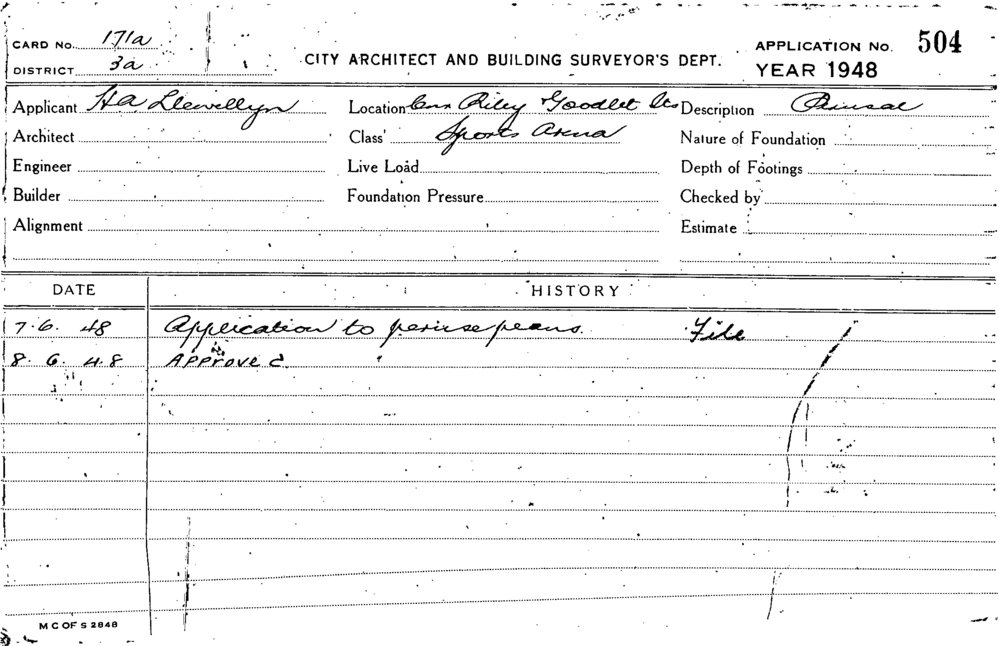 CARD No. 171a
DISTRICT 3a
CITY ARCHITECT AND BUILDING SURVEYOR'S DEPT.
APPLICATION No. 504
YEAR 1948
Applicant H A Llewellyn Location Cnr Riley & Goodlet Sts Description Perusal
Architect Class Sports Arena Nature of Foundation
Engineer Live Load Depth of Footings
Builder Foundation Pressure Checked by
Alignment Estimate
DATE HISTORY
7.6.48 Application to peruse plans. File
8.6.48 Approved.
M C OF S 2848